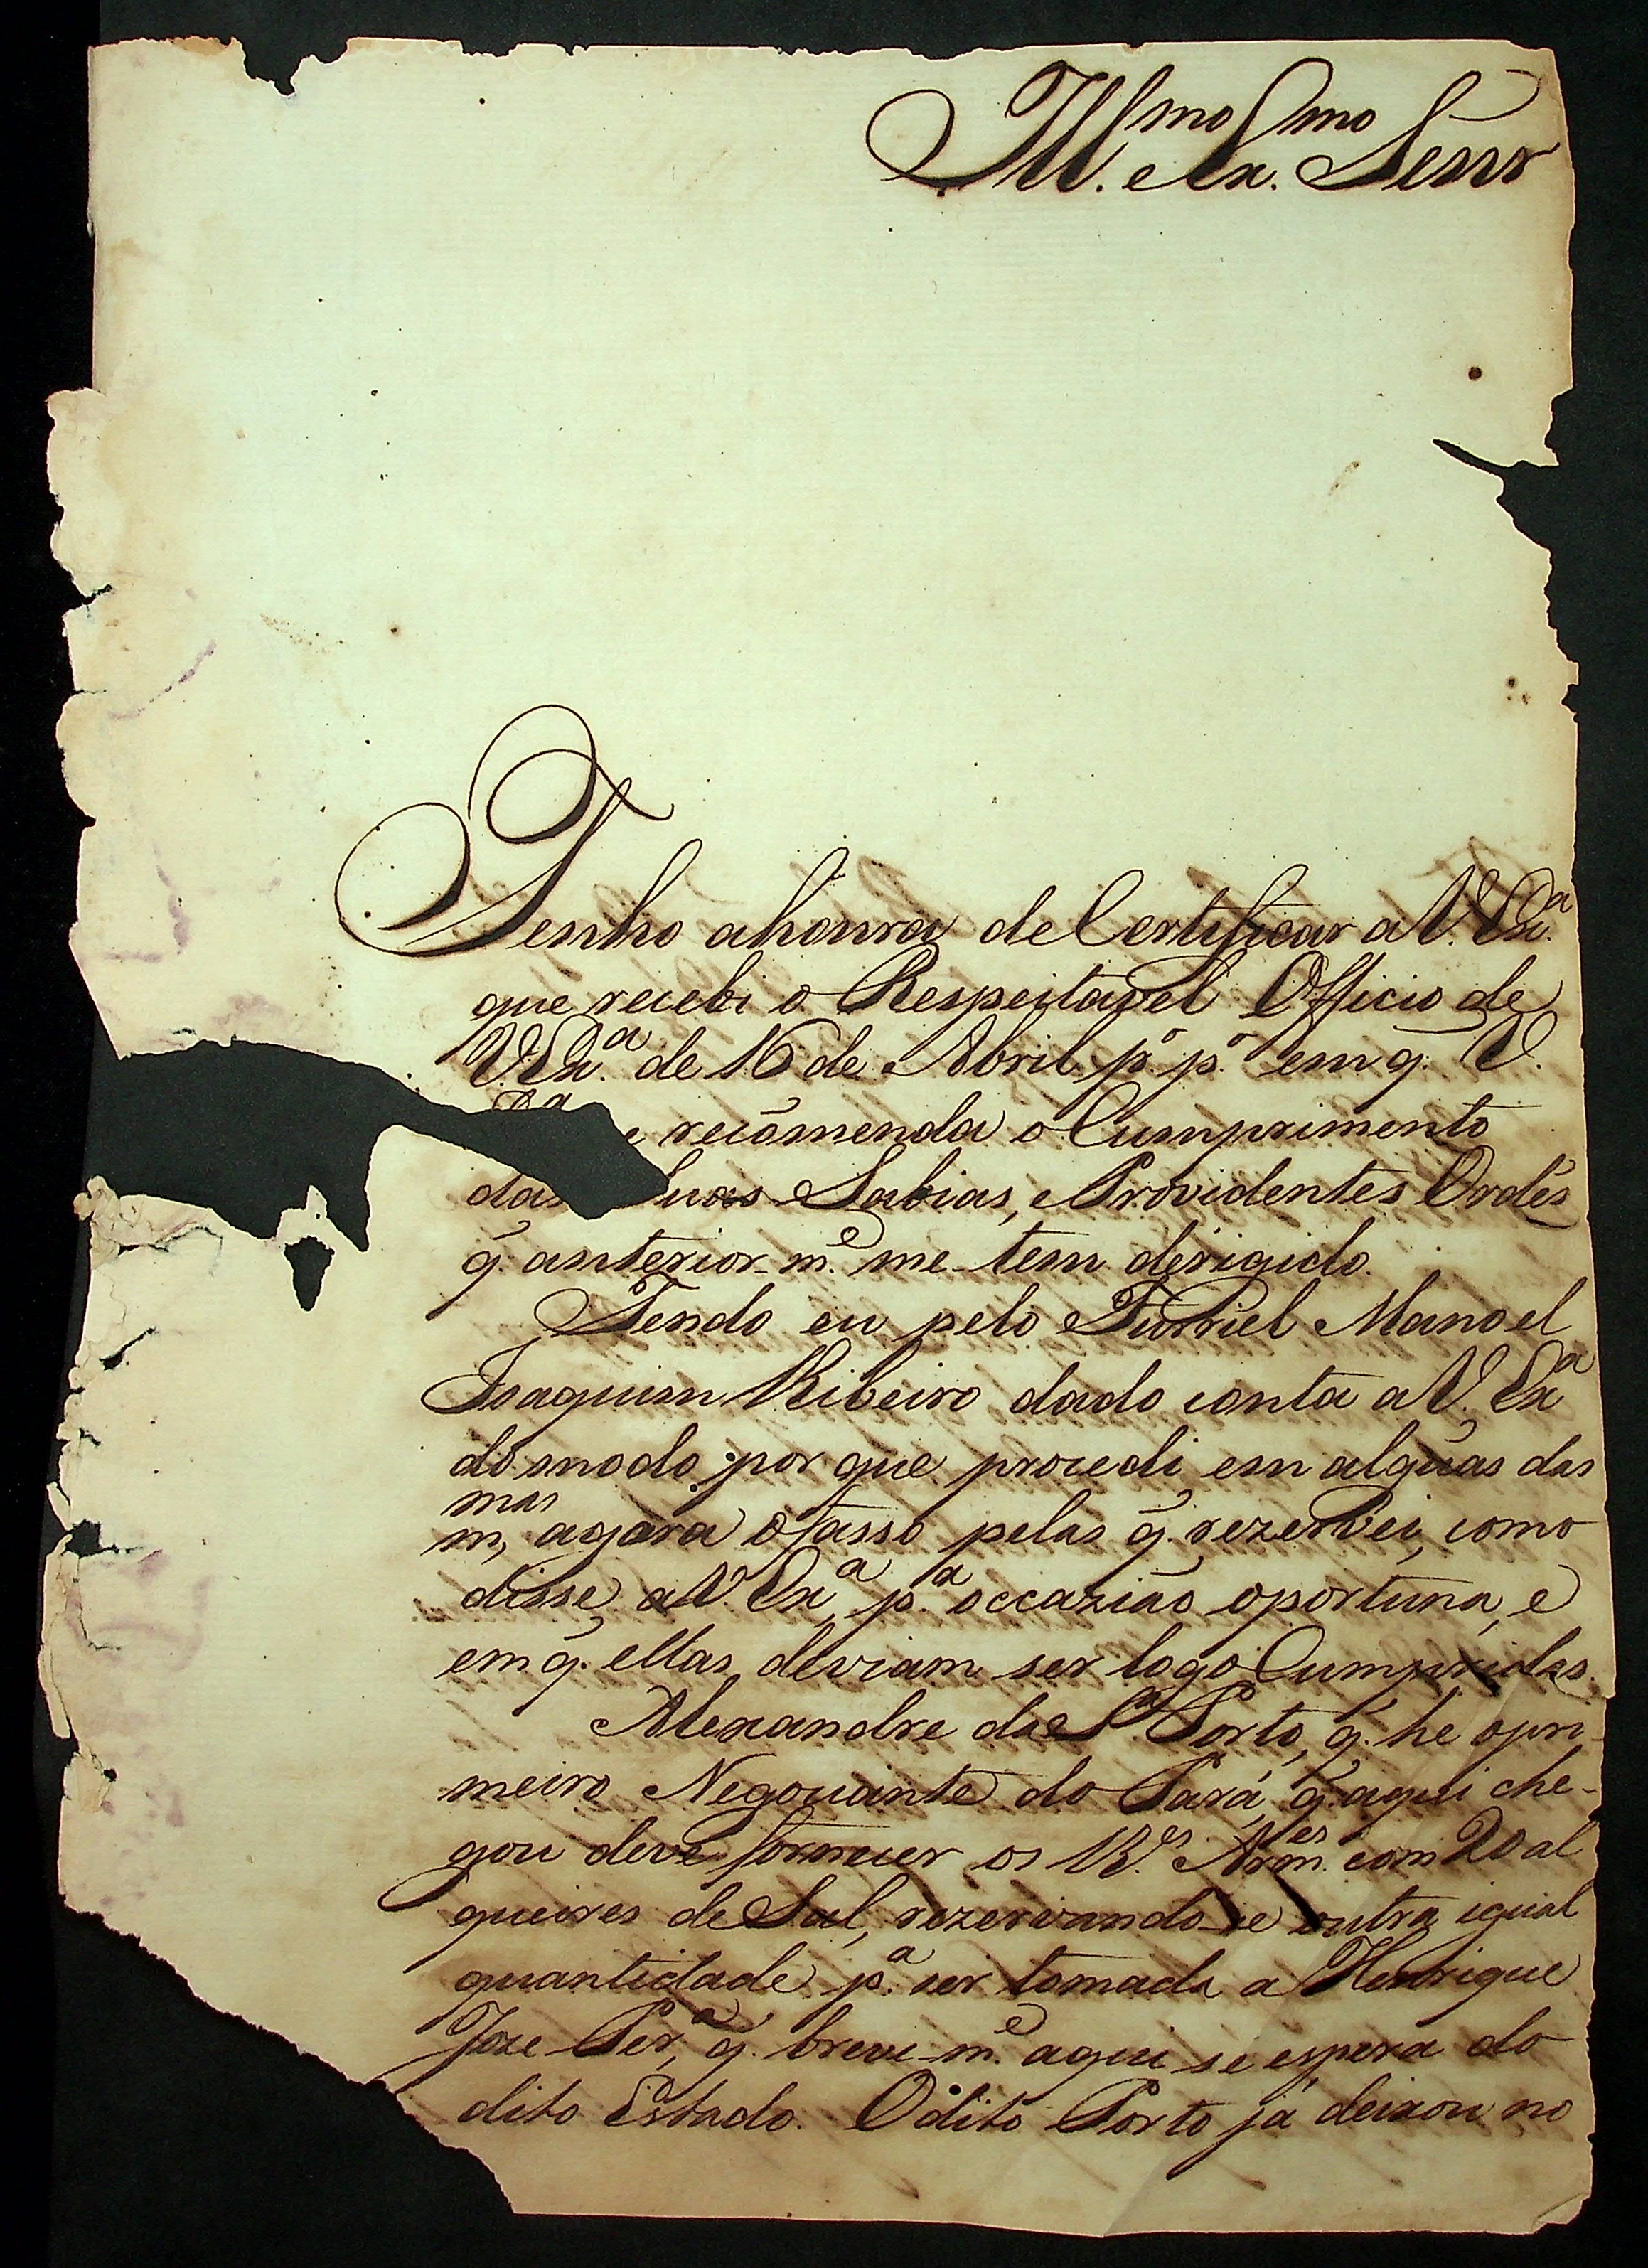 Ill.mo e Ex.mo Senr
Tenho ahonra de Certificar a V. Ex.a
que recebi o Respeitavel Officio de
V. Ex.a de 16 de Abril p.o p.o em q̃. V.
e recõmenda o Cumprimento
das Suas Sabias, e Providentes Ordẽs
q̃. anterior-m.e me-tem derigido.
Tendo eu pelo Furriel Manoel
Joaquim Ribeiro dado conta a V. Ex.a
do modo por que procedi em algũas das
mas, agora o fasso pelas q̃. rezervei, como
disse, a V. Ex.a, p.a occazião oportuna, e
em q̃. ellas deviam ser logo Cumpridas.
Alexandre de S.a Porto, q̃. he opri-
meiro Negociante do Pará, q̃. aqui che-
gou deve fornecer os R.es Arm.es com 20 al
queires de Sal, rezervando-se outra igual
quantidade p.a ser tomada a Henrique
Joze Per.a, q̃. breve-m.e aqui se espera do
dito Estado. Odito Porto já deixou no